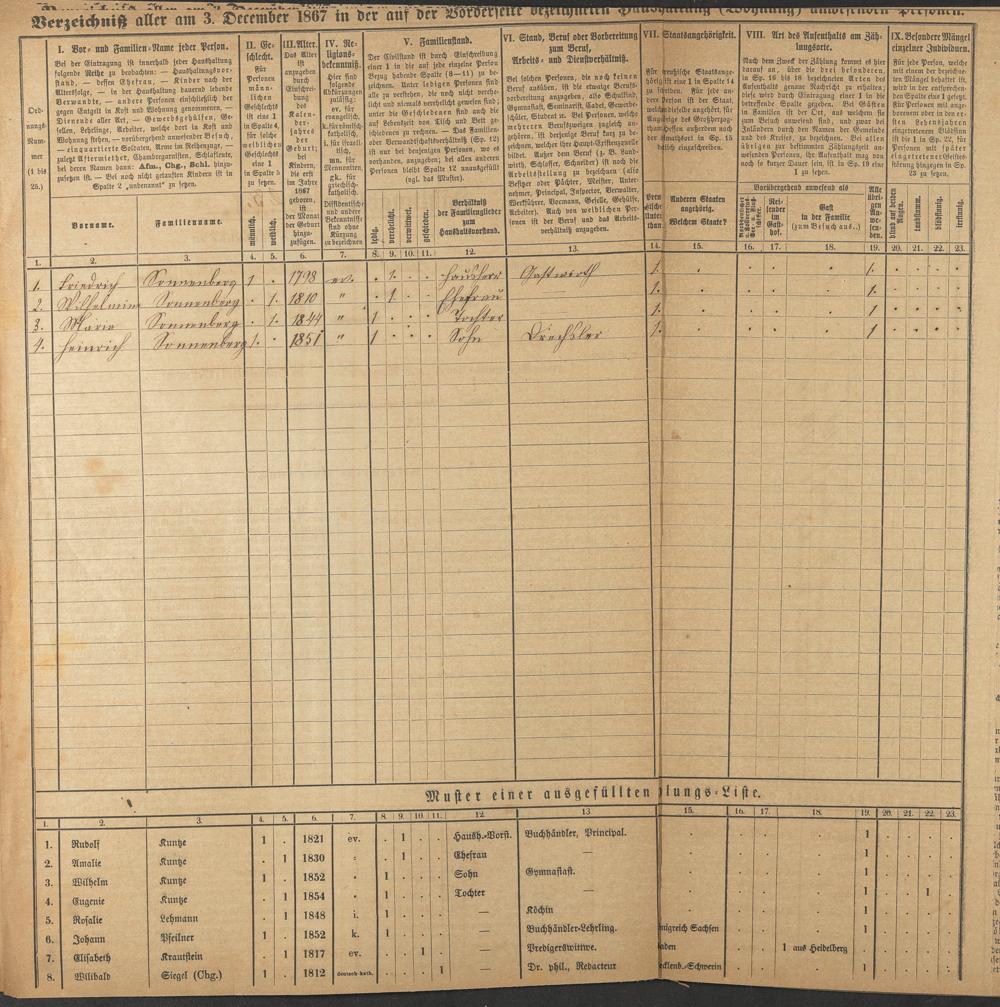 Verzeichniß aller am 3. December 1867 in der auf der Vorderseite bezeichneten Haushaltung (Wohnung) anwesenden Personen.
Ord-
nungs-
Num-
mer
(1 bis
25.)
I. Vor- und Familien-Name jeder Person.
Bei der Eintragung ist innerhalb jeder Haushaltung
folgende Reihe zu beobachten: — Haushaltungsvor-
stand, — dessen Ehefrau, — Kinder nach der
Altersfolge, — in der Haushaltung dauernd lebende
Verwandte, — andere Personen einschließlich der
Dienende aller Art, — Gewerbsgehülfen, Ge-
sellen, Lehrlinge, Arbeiter, welche dort in Kost und
Wohnung stehen, — vorübergehend anwesender Besuch,
— einquartierte Soldaten, Arme im Reihenzuge, —
zuletzt Aftermiether, Chambregarnisten, Schlafleute,
bei deren Namen dann: Afm., Chg., Schl. hinzu-
zusetzen ist. — Bei noch nicht getauften Kindern ist in
Spalte 2 „unbenannt“ zu setzen.
Vorname.
Familienname.
II. Ge-
schlecht.
Für
Personen
männ-
lichen
Geschlechts
ist eine 1
in Spalte 4,
für solche
weiblichen
Geschlechts
eine 1
in Spalte 5
zu setzen.
männlich.
weiblich.
III. Alter.
Das Alter
ist
anzugeben
durch
Einschrei-
bung
des
Kalen-
der-
jahres
der
Geburt;
bei
Kindern,
die erst
im Jahre
1867
geboren,
ist
der Monat
der Geburt
hinzu-
zufügen.
IV. Re-
ligions-
bekenntniß.
Hier sind
folgende
Abkürzungen
zulässig:
ev. für
evangelisch,
k. für römisch-
katholisch,
V. Familienstand.
Der Civilstand ist durch Einschreibung
einer 1 in die auf jede einzelne Person
Bezug habende Spalte (8—11) zu be-
zeichnen. Unter ledigen Personen sind
alle zu verstehen, die noch nicht verehe-
licht und niemals verehelicht gewesen sind;
unter die Geschiedenen sind auch die
auf Lebenszeit von Tisch und Bett ge-
schiedenen zu rechnen. — Das Familien-
oder Verwandtschaftsverhältniß (Sp. 12)
ist nur bei denjenigen Personen, wo es
vorhanden, anzugeben; bei allen anderen
Personen bleibt Spalte 12 unausgefüllt
(vgl. das Muster).
ledig.
verehelicht.
verwittwet.
geschieden.
Verhältniß
der Familienglieder
zum
Haushaltsvorstand.
VI. Stand, Beruf oder Vorbereitung
zum Beruf,
Arbeits- und Dienstverhältniß.
Bei solchen Personen, die noch keinen
Beruf ausüben, ist die etwaige Berufs-
vorbereitung anzugeben, als Schulkind,
Gymnasiast, Seminarist, Cadet, Gewerbe-
schüler, Student u. Bei Personen, welche
mehreren Berufszweigen zugleich an-
gehören, ist derjenige Beruf kurz zu be-
zeichnen, welcher ihre Haupt-Existenzquelle
bildet. Außer dem Beruf ist noch die
Arbeitsstellung zu bezeichnen (also
Besitzer oder Pächter, Meister, Unter-
nehmer, Principal, Inspector, Verwalter,
Werkführer, Vormann, Geselle, Gehülfe,
Arbeiter). Auch von weiblichen Per-
sonen ist der Beruf und das Arbeits-
verhältniß anzugeben.
VII. Staatsangehörigkeit.
Anderen Staaten
angehörig.
Welchem Staate?
VIII. Art des Aufenthalts am Zäh-
lungsorte.
Nach dem Zweck der Zählung kommt es hier
darauf an, über die drei besonderen,
in Sp. 16 bis 18 bezeichneten Arten des
Aufenthalts genaue Nachricht zu erhalten;
diese wird durch Eintragung einer 1 in die
betreffende Spalte gegeben. Bei Gästen
in Familien ist der Ort, aus welchem sie
zum Besuch anwesend sind, und zwar bei
Inländern durch den Namen der Gemeinde
und des Kreises, zu bezeichnen. Bei allen
übrigen zur bestimmten Zählungszeit an-
wesenden Personen, ihr Aufenthalt mag von
noch so kurzer Dauer sein, ist in Sp. 19 eine
1 zu setzen.
Vorübergehend anwesend als
Rei-
sender
im
Gast-
hof.
Gast
in der Familie
(zum Besuch aus..)
Alle
übri-
gen
An-
we-
sen-
den.
IX. Besondere Mängel
einzelner Individuen.
Für jede Person, welche
mit einem der bezeichne-
ten Mängel behaftet ist,
wird in der entsprechen-
den Spalte eine 1 gesetzt.
blind auf beiden
Augen.
taubstumm.
blödsinnig.
irrsinnig.
1. 2. 3. 4. 5. 6. 7. 8. 9. 10. 11. 12. 13. 14. 15. 16. 17. 18. 19. 20. 21. 22. 23.
1. Friedrich Sonnenberg 1 . 1798 ev. . 1. . . Hausherr Gastwirth 1. . . . . 1. . . . .
2. Wilhelmine Sonnenberg . 1. 1810 " . 1. . . Ehefrau — 1. . . . . 1. . . . .
3. Maria Sonnenberg . 1. 1844 " 1 . . . Tochter — 1. . . . . 1 . . . .
4. Heinrich Sonnenberg 1. . 1851 " 1 . . . Sohn Drechsler 1. . . . . 1 . . . .
Muster einer ausgefüllten lungs-Liste.
1. 2. 3. 4. 5. 6. 7. 8. 9. 10. 11. 12. 13 15. 16. 17. 18. 19. 20. 21. 22. 23.
1. Rudolf Kuntze 1 . 1821 ev. . 1 . . Haush.-Vorst. Buchhändler, Principal. . . . . 1 . . . .
2. Amalie Kuntze . 1 1830 " . 1 . . Ehefrau — . . . . 1 . . . .
3. Wilhelm Kuntze 1 . 1852 " 1 . . . Sohn Gymnasiast. . . . . 1 . . . .
4. Eugenie Kuntze . 1 1854 " 1 . . . Tochter — . . . . 1 . . 1 .
5. Rosalie Lehmann . 1 1848 i. 1 . . . — Köchin . . . . 1 . . . .
6. Johann Pfeilner 1 . 1852 k. 1 . . . — Buchhändler-Lehrling. nigreich Sachsen . . . 1 . . . .
7. Elisabeth Krautstein . 1 1817 ev. . . 1 . — Predigerswittwe. aden . . 1 aus Heidelberg . . . . .
8. Wilibald Siegel (Chg.) 1 . 1812 deutsch-kath. . . . 1 — Dr. phil., Redacteur ecklenb.-Schwerin . . . 1 . . . .